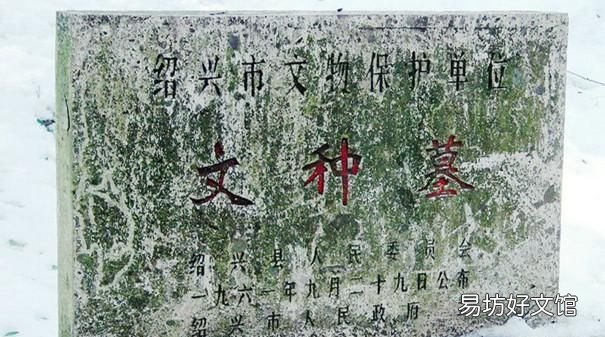 绍兴市文物保护单位
文种墓
绍兴县人民委员会
一九六一年九月二十九日公布
绍兴市人民政府
易坊好文馆